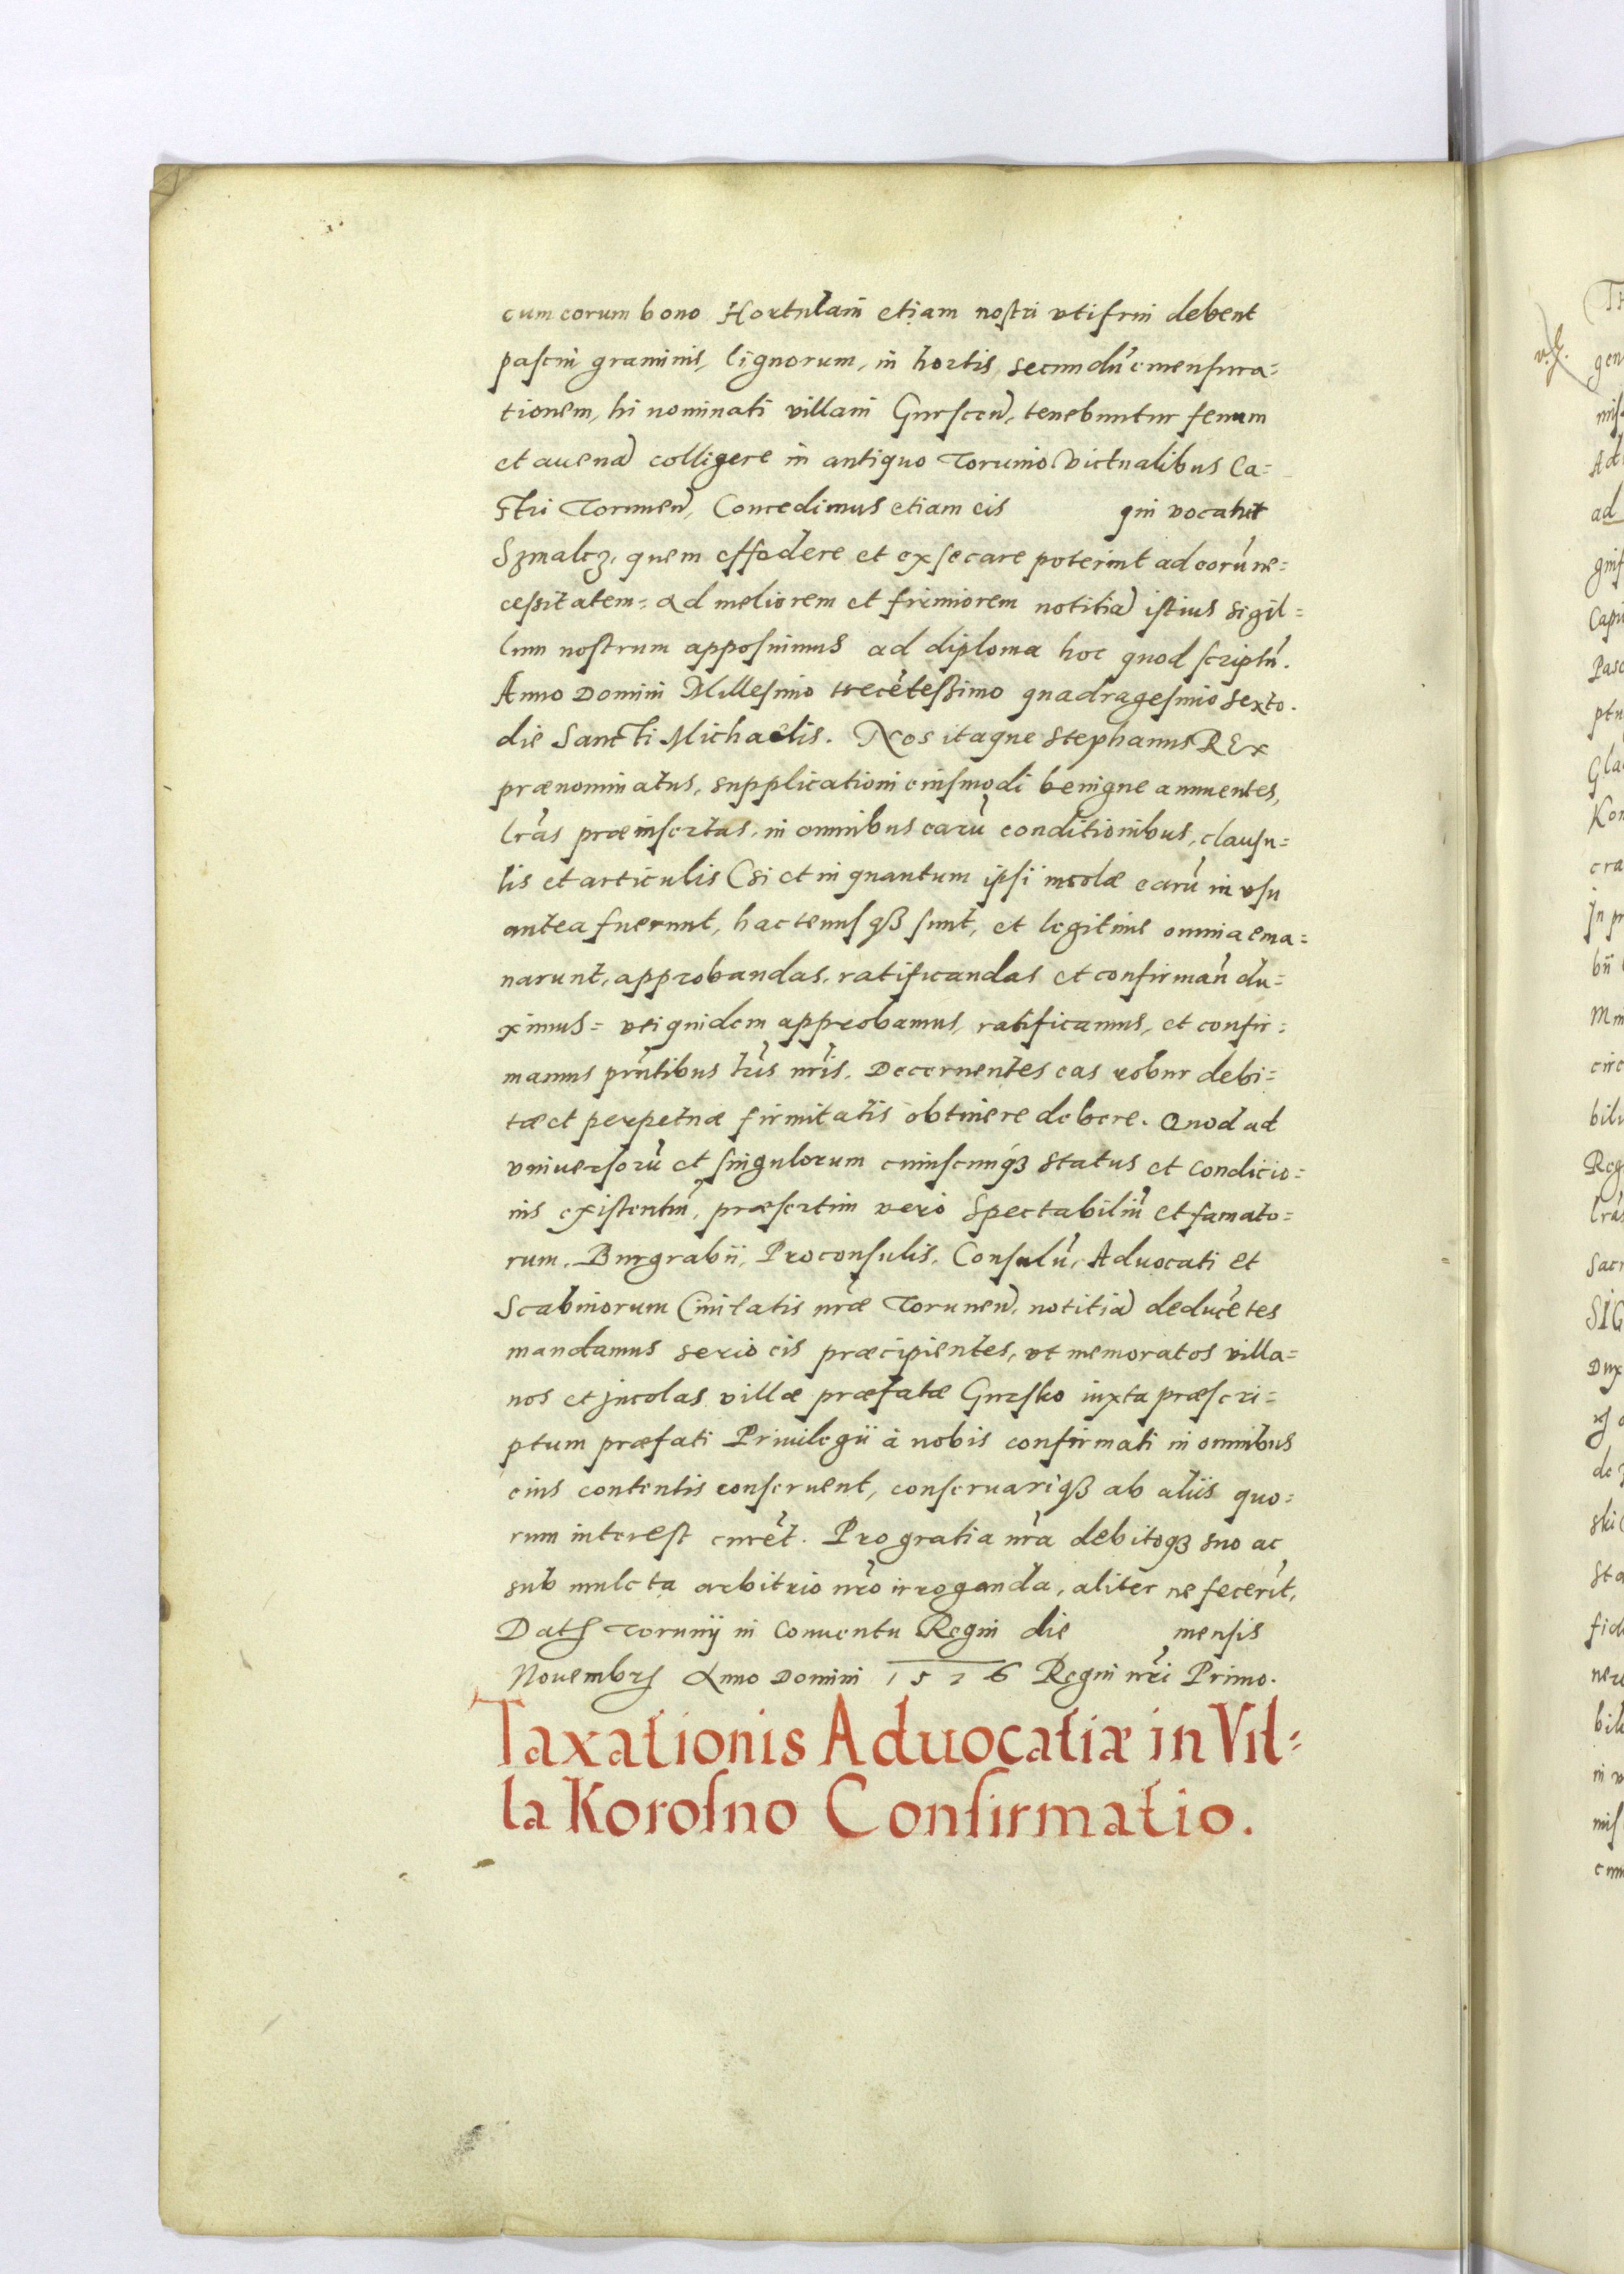 cum eorum bono Hortulani etiam nostri vtifrui debent
pascui graminis, lignorum, in hortis, secundũ emensura=
tionem, hi nominati villani Gurscen, tenebuntur fenum
et auena colligere in antiquo Torunio victualibus Ca=
stri Torunen, Concedimus etiam eis qui vocatur
Szmalcz, quem effodere et exsecare poterint ad eorũ ne=
cessitatem= Ad meliorem et firmiorem notitia istius sigil=
lum nostrum apposuimus ad diploma hoc quod scriptũ.
Anno Domini Millesimo trecẽtessimo quadragesimo sexto.
die Sancti Michaelis. Nos itaque Stephanus REx
prænominatus, supplicationi eiusmodi benigne annuentes,
lrãs præinsertas, in omnibus earũ conditionibus, clausu=
lis et articulis (si et in quantum ipsi incolæ earũ in vsu
antea fuerunt, hactenusqȝ sunt, et legitime omnia ema=
narunt, approbandas, ratificandas et confirmañ du=
ximus= vti quidem approbamus, ratificamus, et confir=
mamus prñtibus lris nris. Decernentes eas robur debi=
tæ et perpetuæ firmitatis obtinere debere. Quod ad
vniuersorũ et singulorum cuiuscunqȝ status et condicio=
nis existentiũ, præsertim vero Spectabiliũ et famato=
rum, Burgrabii, Proconsulis, Consulũ, Aduocati et
Scabinorum Ciuitatis nræ Torunen, notitia deducẽtes
mandamus serio eis præcipientes, vt memoratos villa=
nos et jncolas villæ præfatæ Gursko iuxta præscri=
ptum præfati Priuilegii à nobis confirmati in omnibus
eius contentis conseruent, conseruariqȝ ab aliis quo=
rum interest curẽt. Pro gratia nra debitoqȝ suo ac
sub mulcta arbitrio nro irroganda, aliter ne fecerĩt,
Datȝ Torunij in Conuentu Regni die mensis
Nouembrȝ Anno Domini 1576 Regni nri Primo.
Taxationis Aduocatiæ in Vil=
la Korosno Confirmatio.